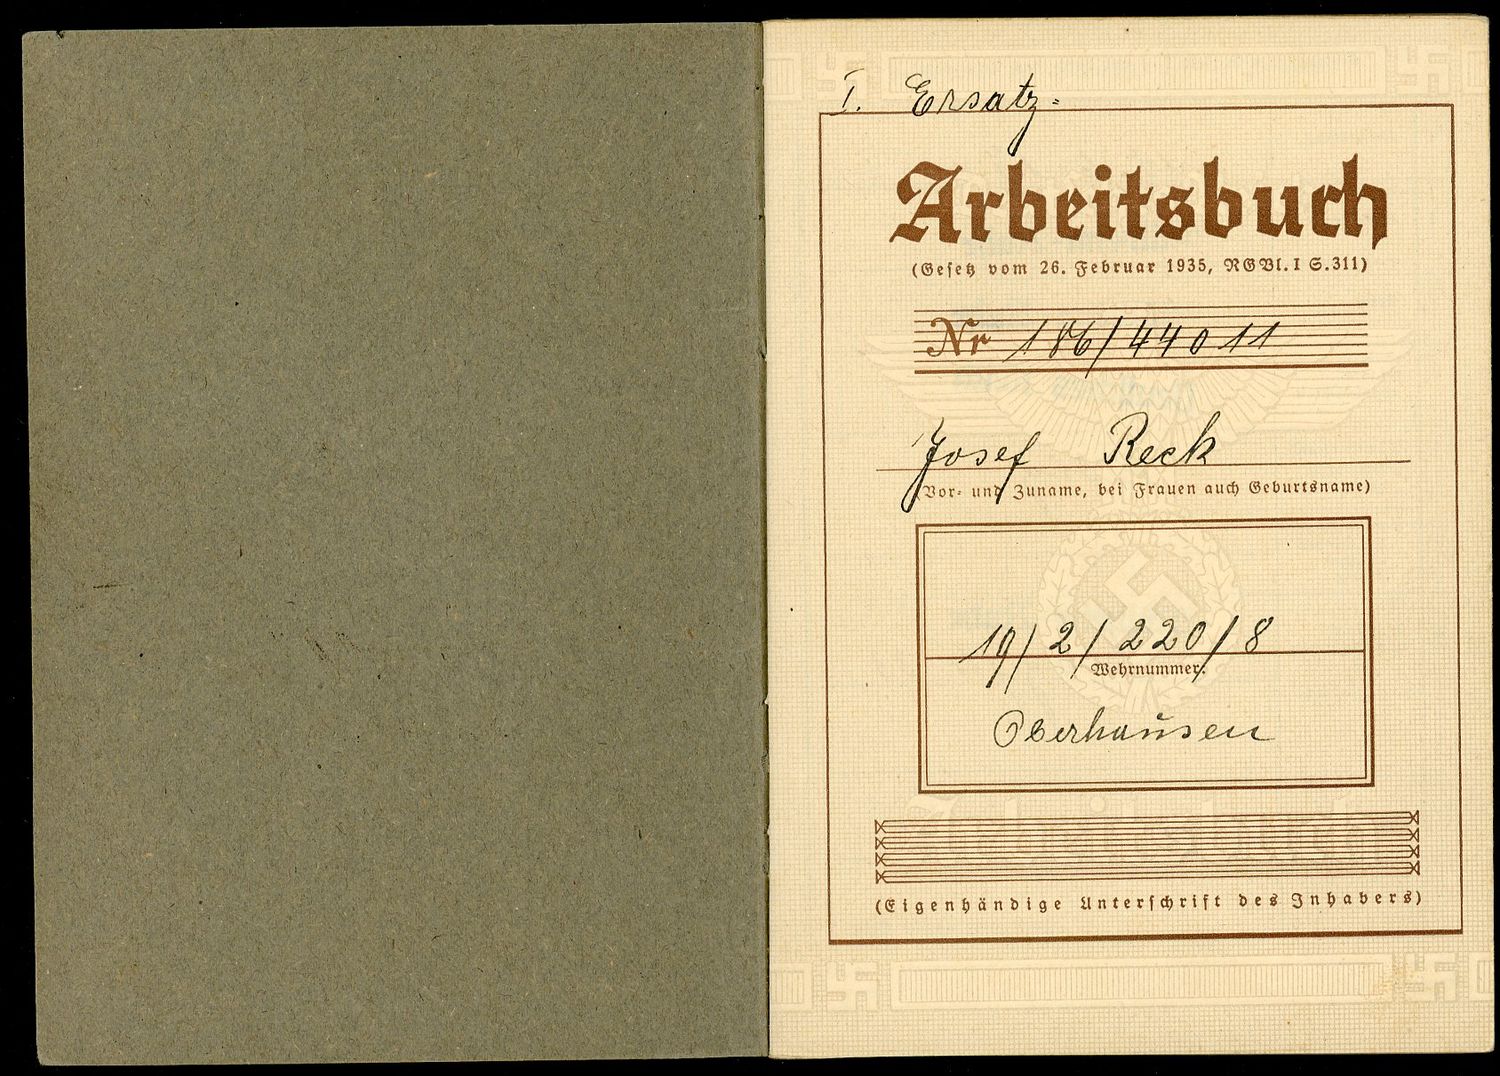 I. Ersatz-
Arbeitsbuch
(Gesetz vom 26. Februar 1935, RGBl. I S. 311)
Nr 186/44011
Josef Reck
(Vor- und Zuname, bei Frauen auch Geburtsname)
19/2/220/8
Wehrnummer.
Oberhausen
(Eigenhändige Unterschrift des Inhabers)